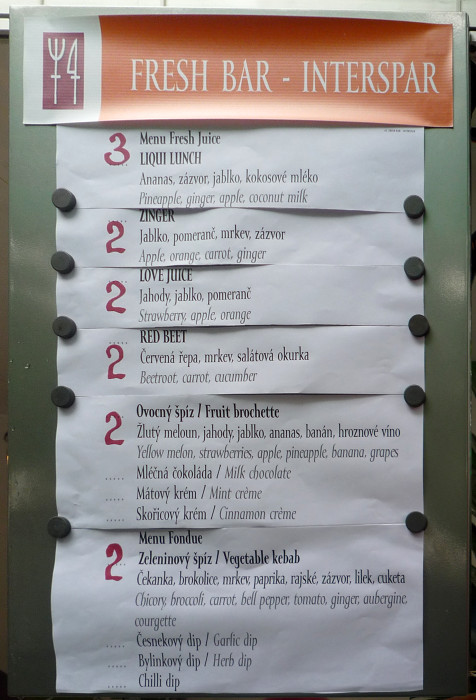 FRESH BAR - INTERSPAR
3 Menu Fresh Juice
LIQUI LUNCH
Ananas, zázvor, jablko, kokosové mléko
Pineapple, ginger, apple, coconut milk
ZINGER
2 Jablko, pomeranč, mrkev, zázvor
Apple, orange, carrot, ginger
LOVE JUICE
2 Jahody, jablko, pomeranč
Strawberry, apple, orange
..... RED BEET
2 Červená řepa, mrkev, salátová okurka
Beetroot, carrot, cucumber
2 Ovocný špíz / Fruit brochette
Žlutý meloun, jahody, jablko, ananas, banán, hroznové víno
Yellow melon, strawberries, apple, pineapple, banana, grapes
..... Mléčná čokoláda / Milk chocolate
..... Mátový krém / Mint crème
..... Skořicový krém / Cinnamon crème
Menu Fondue
2 Zeleninový špíz / Vegetable kebab
Čekanka, brokolice, mrkev, paprika, rajské, zázvor, lilek, cuketa
Chicory, broccoli, carrot, bell pepper, tomato, ginger, aubergine,
courgette
..... Česnekový dip / Garlic dip
..... Bylinkový dip / Herb dip
..... Chilli dip